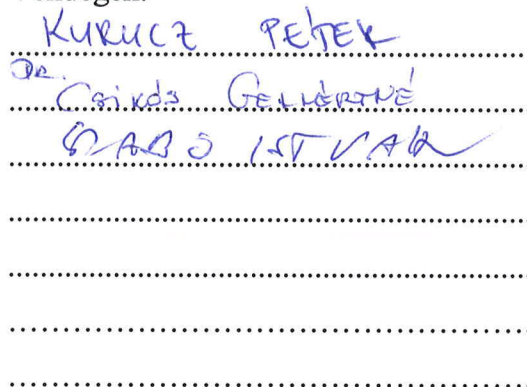 KURUCZ PETER
DR.
Csikós GELLÉRTNÉ
SZABÓ ISTVÁN